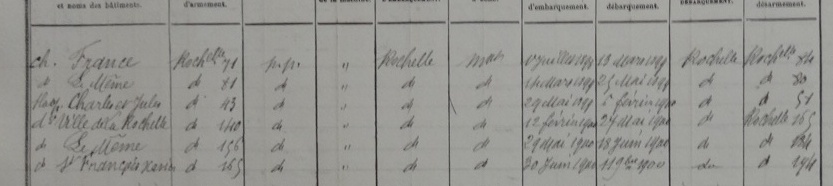 et noms des bâtiments. d'armement. d'embarquement. débarquement. DÉBARQUEMENT. désarmement.
ch. France Rochelle 71 " Rochelle mat juillet 13 Mars Rochelle Rochelle 84
d° Le Même d° 81 d° " d° d° 14 Mars 25 Mai d° d° 80
Charles et Jules d° 43 d° " d° d° 29 Mai 6 février d° d° 51
d° Ville de la Rochelle d° 140 d° " d° d° 12 février 1900 27 Mai 1900 d° Rochelle 165
d° Le Même d° 156 d° " d° d° 29 Mai 1900 18 Juin 1900 d° d° 184
d° St François Xavier d° 165 d° " d° d° 20 Juin 1900 9bre 1900 d° d° 194